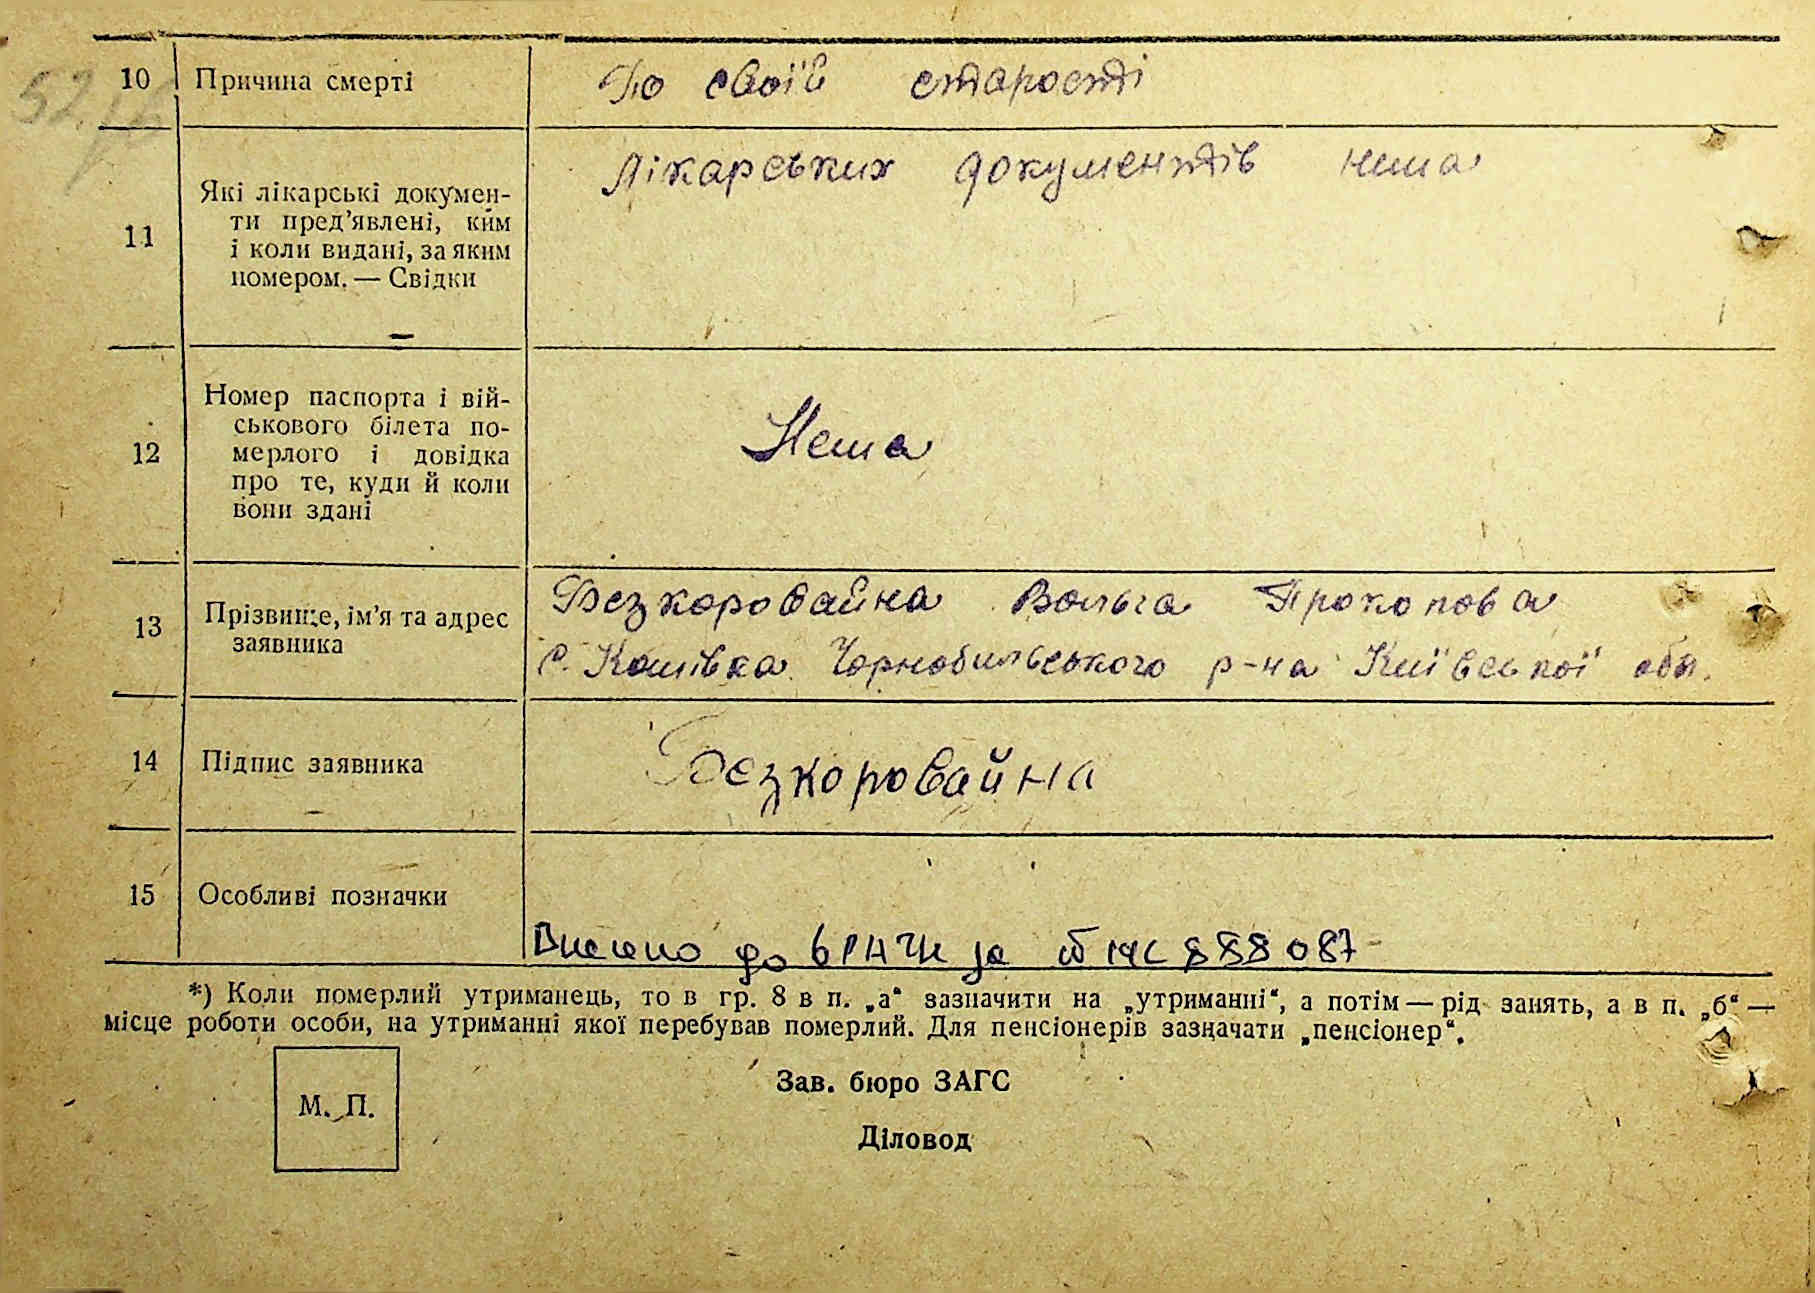 10 Причина смерті По своїй старості
Лікарських документів нема
Які лікарські докумен-
ти пред’явлені, ким
11
і коли видані, за яким
номером. — Свідки
Номер паспорта і вій-
ськового білета по-
12 мерлого і довідка Нема
про те, куди й коли
вони здані
Безкоровайна Вольга Прокопова
13 Прізвище, ім’я та адрес
заявника
с. Кошівка Чорнобильського р-на Київської обл.
14 Підпис заявника Безкоровайна
15 Особливі позначки
Внесено до за 888087
*) Коли померлий утриманець, то в гр. 8 в п. „а“ зазначити на „утриманні“, а потім — рід занять, а в п. „б“ —
місце роботи особи, на утриманні якої перебував померлий. Для пенсіонерів зазначати „пенсіонер“.
Зав. бюро ЗАГС
М. П.
Діловод